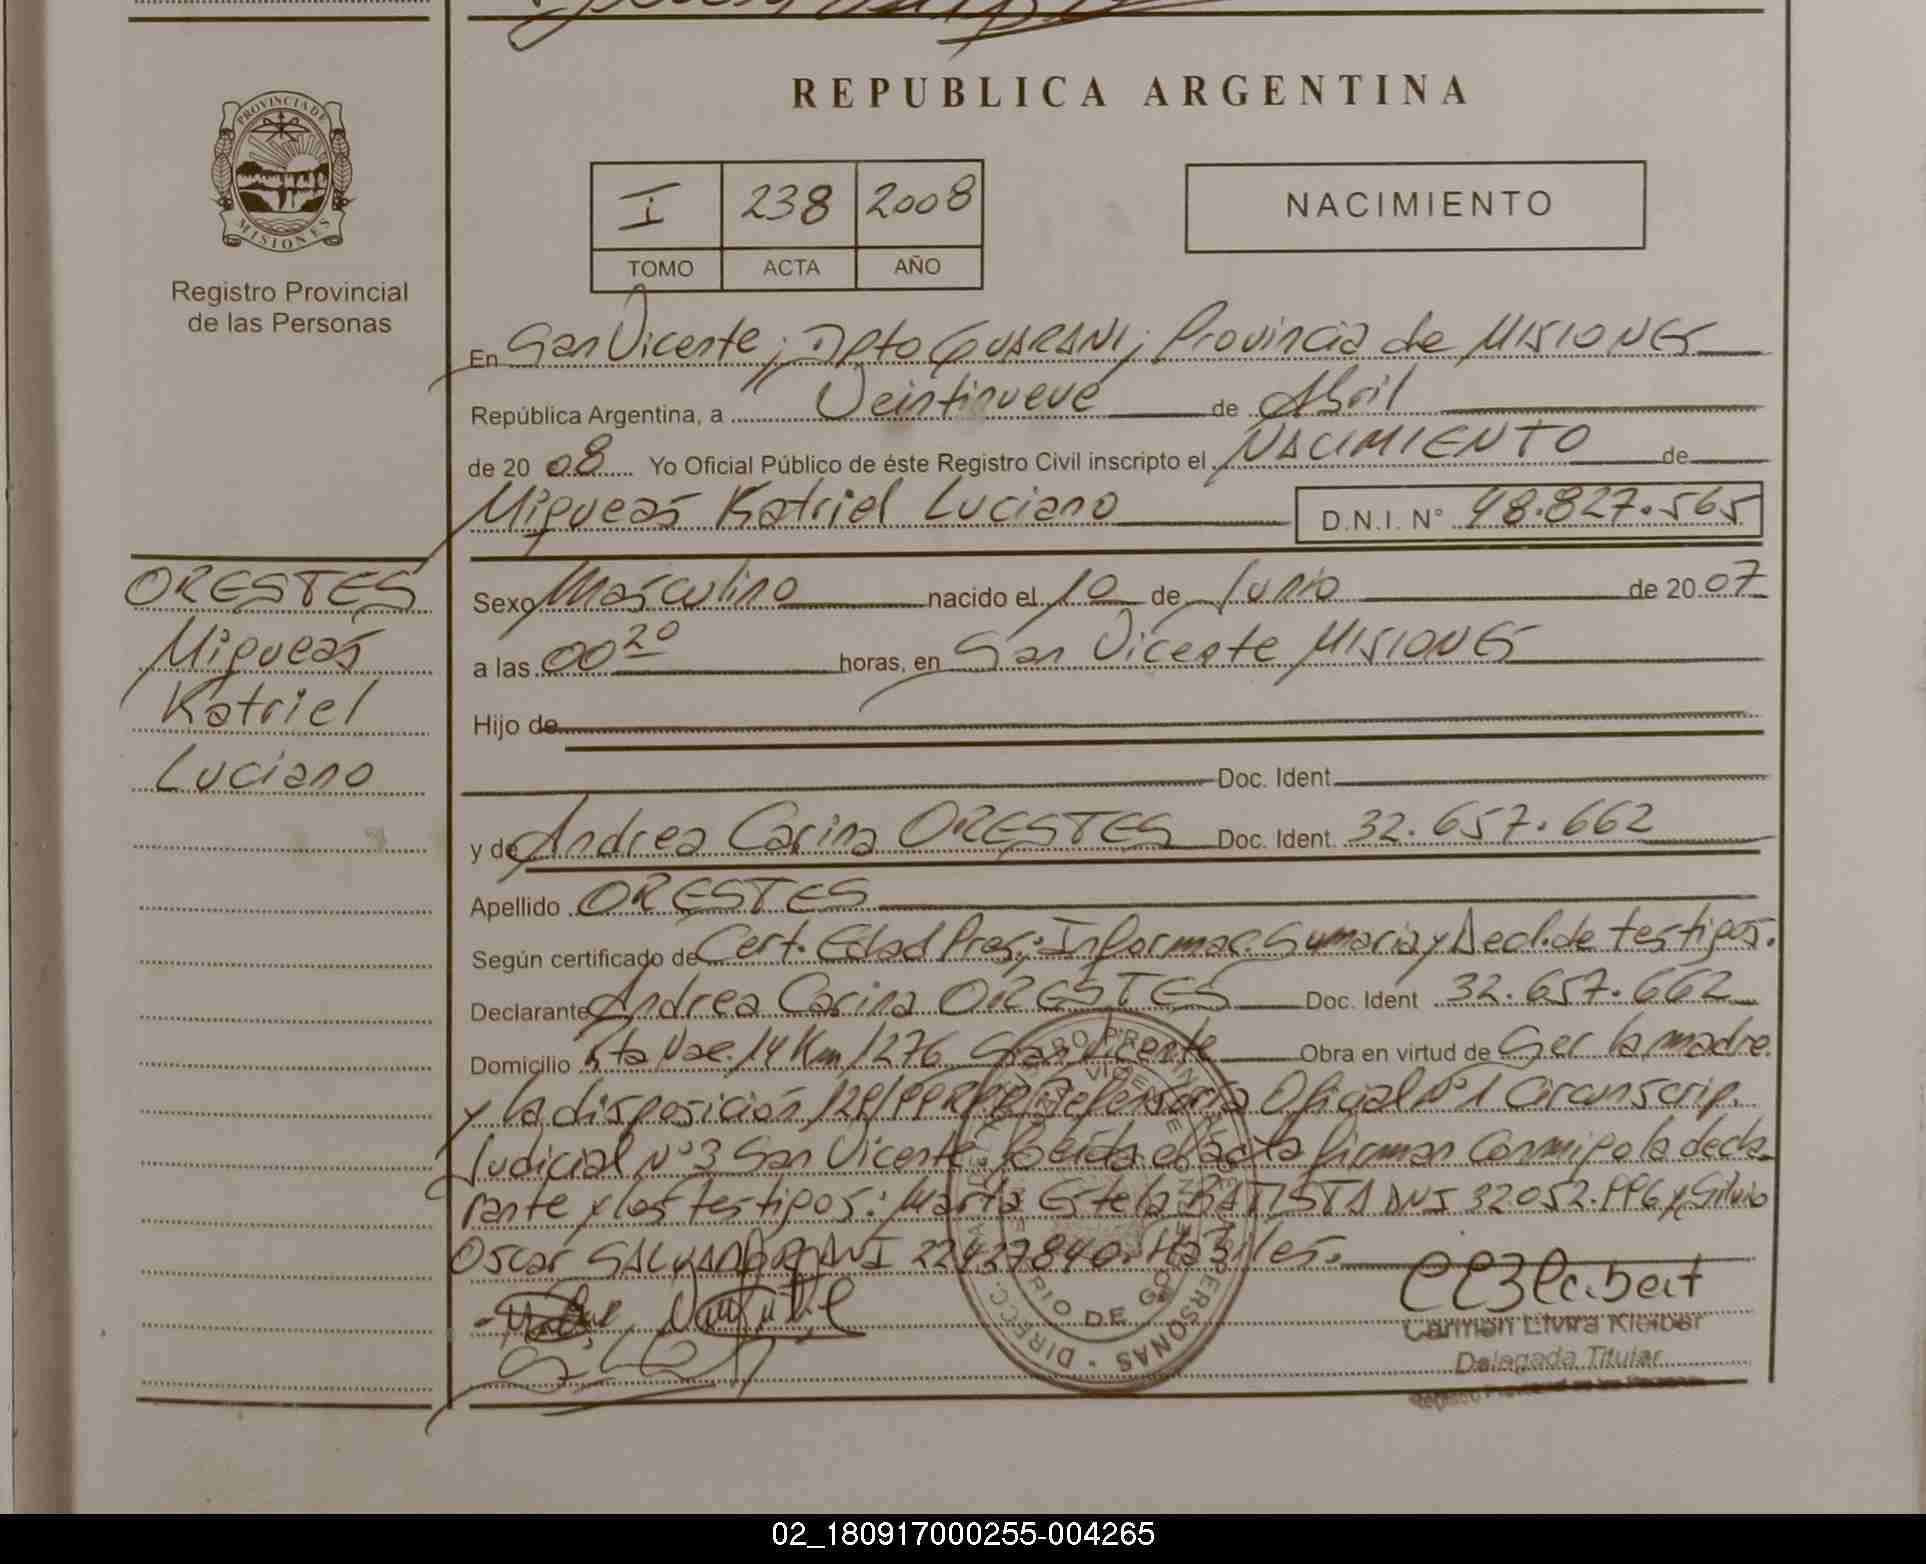 REPUBLICA ARGENTINA
PROVINCIA DE
MISIONES
Registro Provincial
de las Personas
I 238 2008
TOMO ACTA AÑO
NACIMIENTO
En San Vicente; Dpto GUARANI; Provincia de MISIONES
República Argentina, a Veintinueve de Abril
de 20 08 Yo Oficial Público de éste Registro Civil inscripto el NACIMIENTO de
Miqueas Katriel Luciano D.N.I. N° 48.827.565
ORESTES
Miqueas
Katriel
Luciano
Sexo Masculino nacido el 10 de Junio de 20 07
a las 00 20 horas, en San Vicente MISIONES
Hijo de
Doc. Ident.
y de Andrea Carina ORESTES Doc. Ident. 32.657.662
Apellido ORESTES
Según certificado de Cert. Edad Pres.; Informac. Sumaria y Decl. de testigos.
Declarante Andrea Carina ORESTES Doc. Ident 32.657.662
Domicilio Rta Nac. 14 Km 1276 San Vicente Obra en virtud de Ser la madre
y la disposición Defensoría Oficial N°1 Circunscrip.
Judicial N°3 San Vicente. Leída el acta firman Conmigo la decla-
rante y los testigos: Marta Estela BATISTA DNI 32052.996 y Silvio
Oscar DNI 22427840. Hábiles.
Carmen Elvira Kleiber
Delegada Titular
02_180917000255-004265